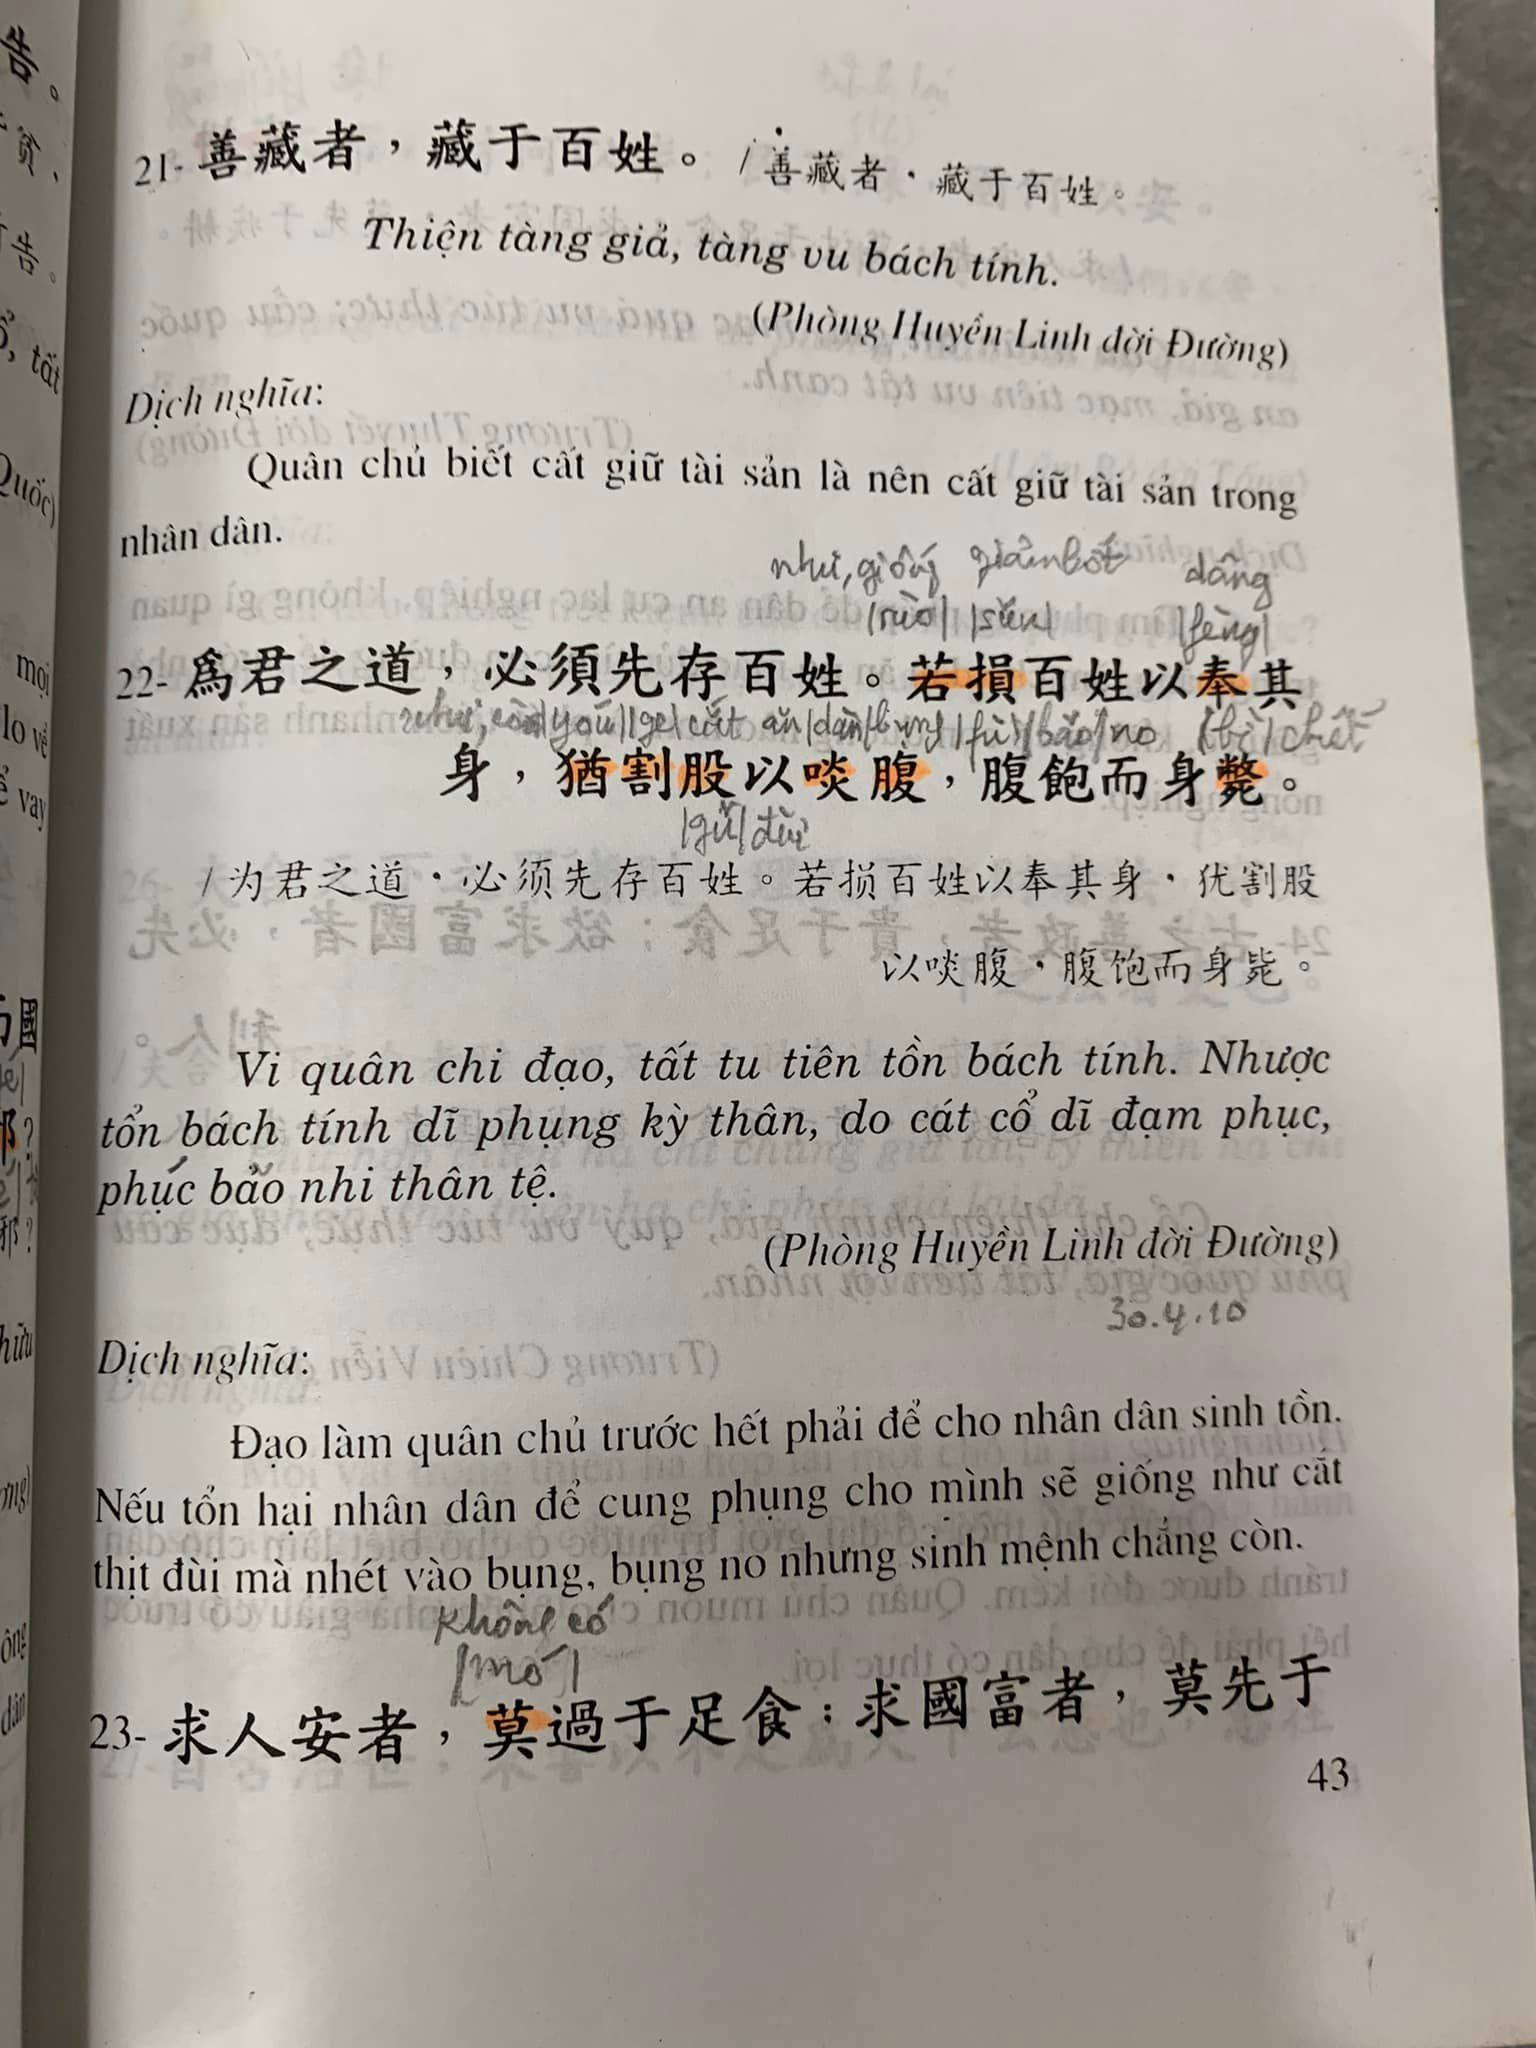 告。
貧、
告。
ổ, tất
Quốc)
mọi
lo về
ể vay
國
邪?
邪?
hữu
ơng)
ông
dân
21- 善藏者，藏于百姓。 / 善藏者，藏于百姓。
Thiện tàng giả, tàng vu bách tính.
(Phòng Huyền Linh đời Đường)
Dịch nghĩa:
Quân chủ biết cất giữ tài sản là nên cất giữ tài sản trong
nhân dân.
như, giống giảm bớt dâng
|ruò| |sǔn| |fèng|
22- 爲君之道，必須先存百姓。若損百姓以奉其
như, còn |yóu| |ge| cắt ăn |dàn| bụng |fù| |bǎo| no |bì| chết
身，猶割股以啖腹，腹飽而身斃。
|gǔ| đùi
/ 为君之道，必须先存百姓。若损百姓以奉其身，犹割股
以啖腹，腹饱而身毙。
Vi quân chi đạo, tất tu tiên tồn bách tính. Nhược
tổn bách tính dĩ phụng kỳ thân, do cát cổ dĩ đạm phục,
phúc bảo nhi thân tệ.
(Phòng Huyền Linh đời Đường)
30.4.10
Dịch nghĩa:
Đạo làm quân chủ trước hết phải để cho nhân dân sinh tồn.
Nếu tổn hại nhân dân để cung phụng cho mình sẽ giống như cắt
thịt đùi mà nhét vào bụng, bụng no nhưng sinh mệnh chẳng còn.
không có
|mò|
23- 求人安者，莫過于足食；求國富者，莫先于
43